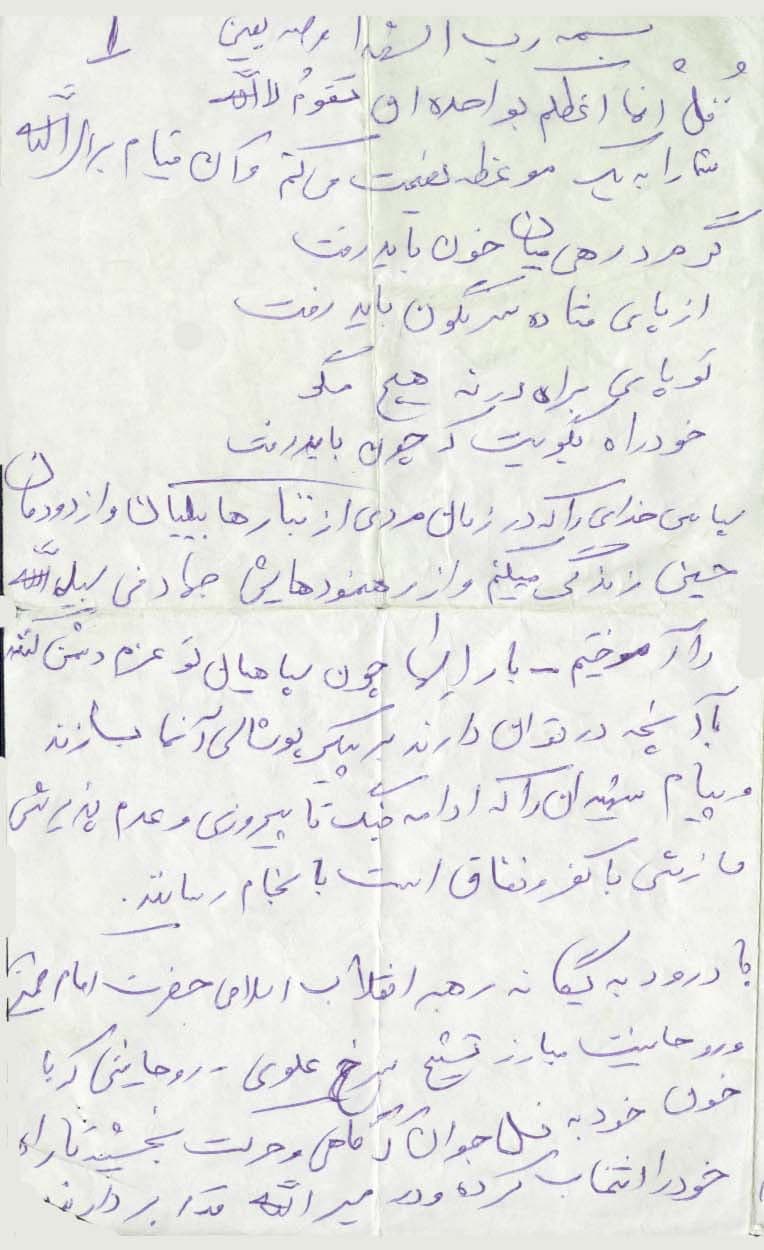 بسمه رب الشهدا و صدیقین ۱
قُلْ انما اعظکم بواحده ان تقومُ لالله
شما را به یک موعظه نصیحت می کنم و آن قیام برای الله
گر مرد رهی میان خون باید رفت
از پای فتاده سرنگون باید رفت
تو پای براه در نه هیچ مگو
خود راه بگویدت که چون باید رفت
سپاس خدای را که در زمان مردی از تبار هابیلیان و از دودمان
حسین زندگی میکنم و از رهنمودهایش جهاد فی سبیل الله
را آموختیم - بار الها چون سپاهیان تو عزم دشمن کنند
با آنچه در توان دارند بر پیکر پوشالی آنها بسازند
و پیام شهیدان را که ادامه جنگ تا پیروزی و عدم پذیرش
سازش با کفر و نفاق است با نجام رسانند.
با درود به یگانه رهبر انقلاب اسلامی حضرت امام خمینی
و روحانیت مبارز تشیع سرخ علوی - روحانیتی که با
خون خود به نسل جوان آگاهی و حرکت بخشید تا راه
خود را انتخاب کرده و در مسیر الله قدم بردارند